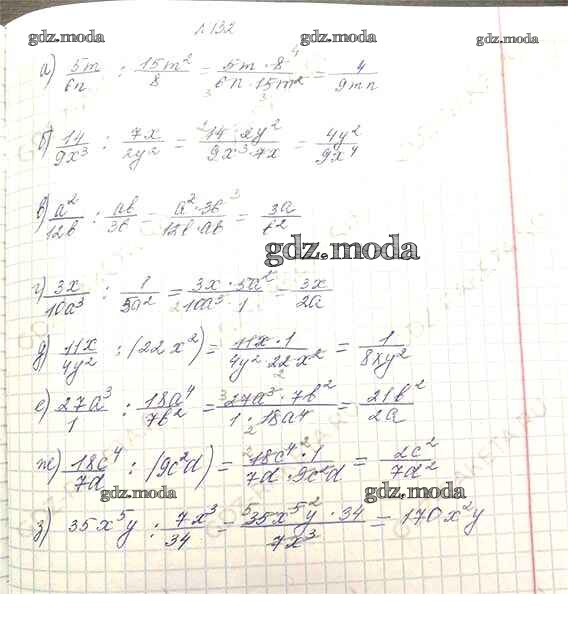 №132
gdz.moda gdz.moda gdz.moda
а) 5m/6n : 15m²/8 = 5m · 8/6n · 15m² = 4/9mn
б) 14/9x³ : 7x/2y² = 14 · 2y²/9x³ · 7x = 4y²/9x⁴
в) a²/12b : ab/3b = a² · 3b/12b · ab = 3a/b²
gdz.moda
г) 3x/10a³ : 1/5a² = 3x · 5a²/10a³ · 1 = 3x/2a
д) 11x/4y² : (22x²) = 11x · 1/4y² · 22 · x² = 1/8xy²
gdz.moda gdz.moda
е) 27a³/1 : 18a⁴/7b² = 27a³ · 7b²/1 · 18a⁴ = 21b²/2a
ж) 18c⁴/7d : (9c²d) = 18c⁴ · 1/7d · 9c²d = 2c²/7d²
gdz.moda gdz.moda
з) 35x⁵y : 7x³/34 = 35x⁵y · 34/7x³ = 170x²y